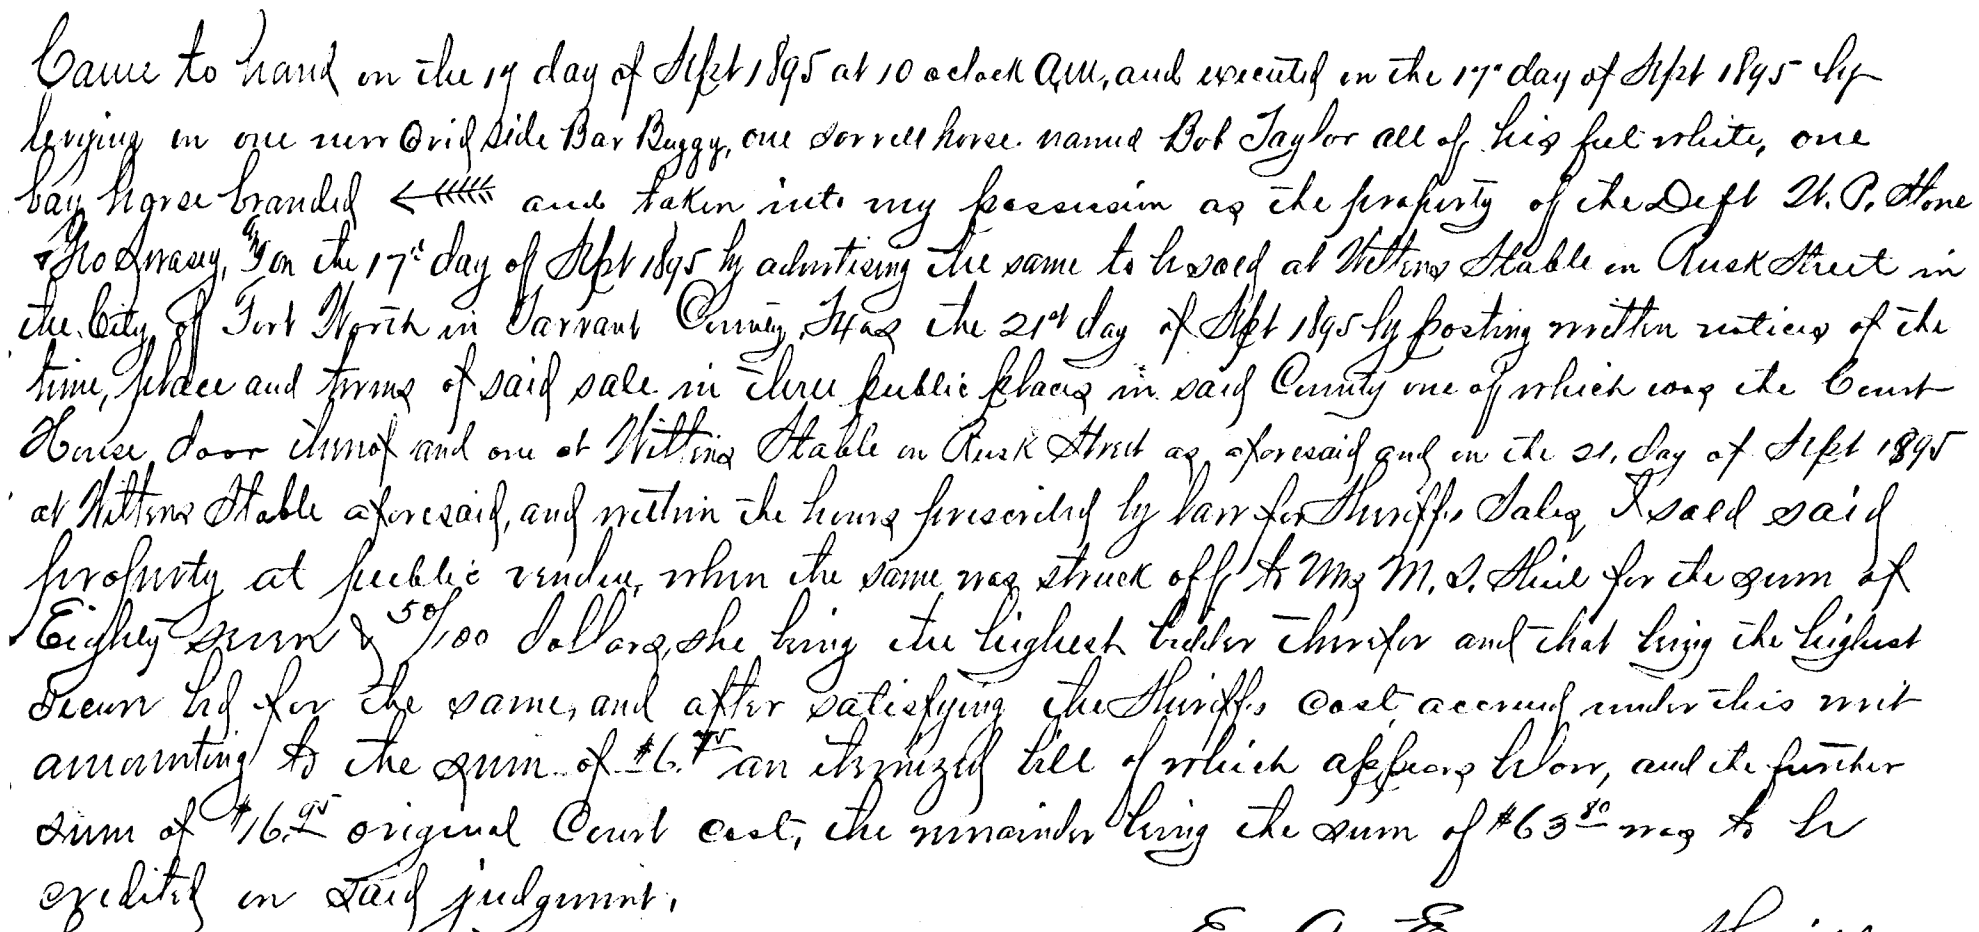 Came to hand on the 17 day of Sept 1895 at 10 oclock A,M., and executed on the 17" day of Sept 1895 by
levying on one new side Bar Buggy, one sorrell horse named Bob Taylor all of his feet white, one
bay horse branded and taken into my possession as the property of the Deft W. P. Stone
& on the 17" day of Sept 1895 by advertising the same to be sold at Wittens Stable on Rusk Street in
the City of Fort Worth in Tarrant County, Texas the 21st day of Sept 1895 by posting written notices of the
time, place and terms of said sale in three public places in said County one of which was the Court
House door thereof and one at Wittens Stable on Rusk Street as aforesaid and on the 21, day of Sept 1895
at Wittens Stable aforesaid, and within the hours prescribed by law for Sheriffs Sales, I sold said
property at public vendue, when the same was struck off to Mrs M. S. for the sum of
Eighty seven & 50/100 dollars, she being the highest bidder therefor and that being the highest
secure bid for the same, and after satisfying the Sheriffs cost accrued under this writ
amounting to the sum of $6.75 an itemized bill of which appears below, and the further
sum of $16.95 original Court cost, the remainder being the sum of $63 80 was to be
credited on said judgment.